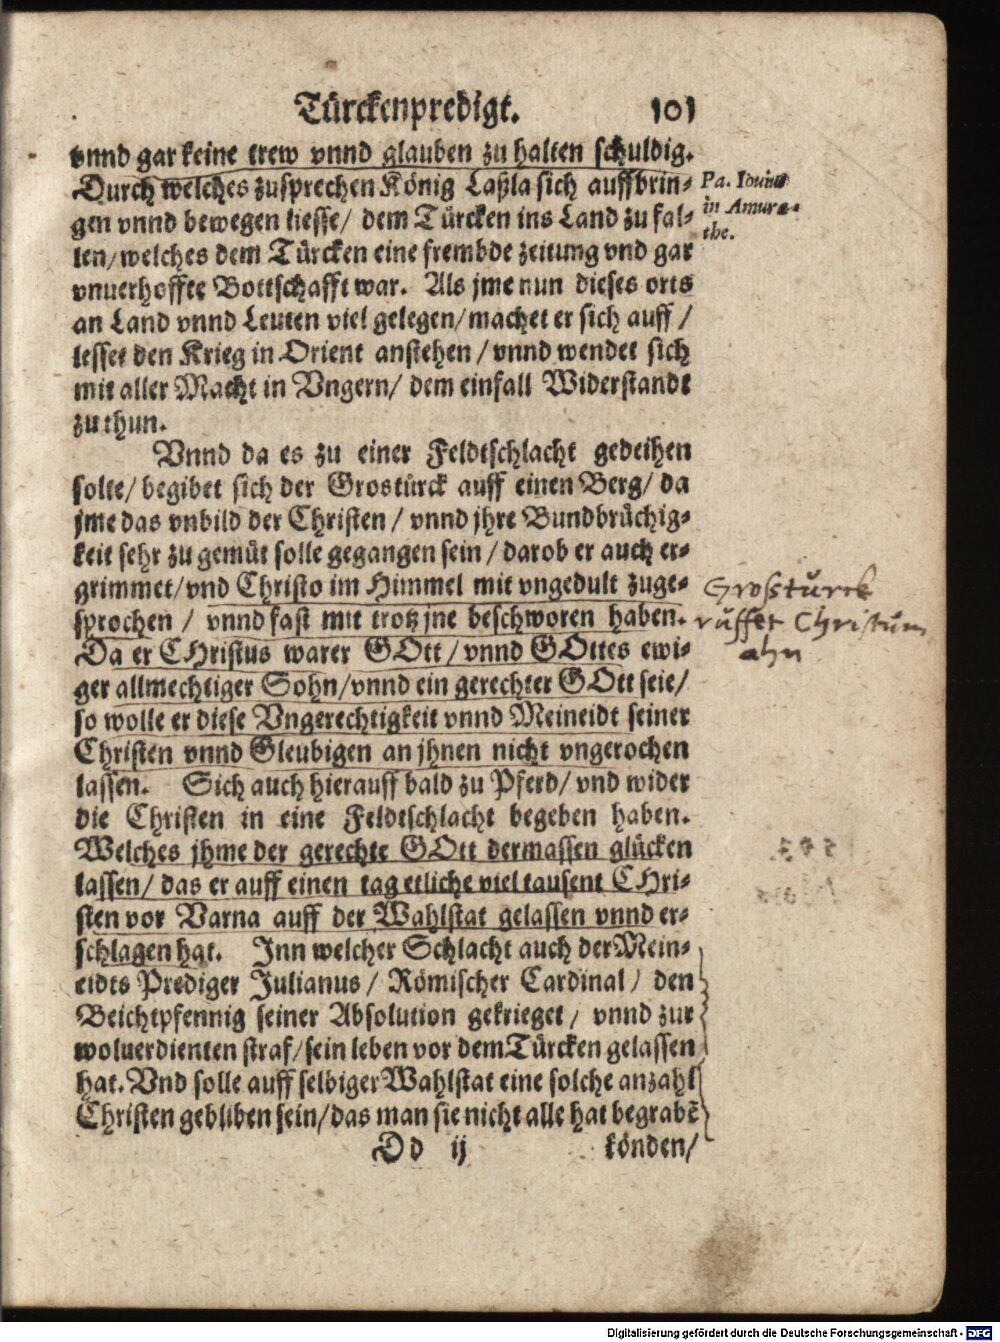 Türckenpredigt. 101
vnnd gar keine trew vnnd glauben zu halten schuldig.
Durch welches zusprechen König Laßla sich auffbrin-
gen vnnd bewegen liesse/ dem Türcken ins Land zu fal-
len/ welches dem Türcken eine frembde zeitung vnd gar
vnuerhoffte Bottschafft war. Als jme nun dieses orts
an Land vnnd Leuten viel gelegen/ machet er sich auff/
lesset den Krieg in Orient anstehen/ vnnd wendet sich
mit aller Macht in Vngern/ dem einfall Widerstandt
zu thun.
Pa. Iouius
in Amura-
the.
Vnnd da es zu einer Feldtschlacht gedeihen
solte/ begibet sich der Grostürck auff einen Berg/ da
jme das vnbild der Christen/ vnnd jhre Bundbrüchig-
keit sehr zu gemüt solle gegangen sein/ darob er auch er-
grimmet/ vnd Christo im Himmel mit vngedult zuge-
sprochen/ vnnd fast mit trotz jne beschworen haben.
Da er CHristus warer GOtt/ vnnd GOttes ewi-
ger allmechtiger Sohn/ vnnd ein gerechter GOtt seie/
so wolle er diese Vngerechtigkeit vnnd Meineidt seiner
Christen vnnd Gleubigen an jhnen nicht vngerochen
lassen. Sich auch hierauff bald zu Pferd/ vnd wider
die Christen in eine Feldtschlacht begeben haben.
Welches jhme der gerechte GOtt dermassen glücken
lassen/ das er auff einen tag etliche viel tausent CHri-
sten vor Varna auff der Wahlstat gelassen vnnd er-
schlagen hat. Inn welcher Schlacht auch der Mein-
eidts Prediger Julianus/ Römischer Cardinal/ den
Beichtpfennig seiner Absolution gekrieget/ vnnd zur
woluerdienten straf/ sein leben vor dem Türcken gelassen
hat. Vnd solle auff selbiger Wahlstat eine solche anzahl
Christen gebliben sein/ das man sie nicht alle hat begrabē
Grosstürck
rüffet Christum
ahn
Dd ij könden/
Digitalisierung gefördert durch die Deutsche Forschungsgemeinschaft - DFG